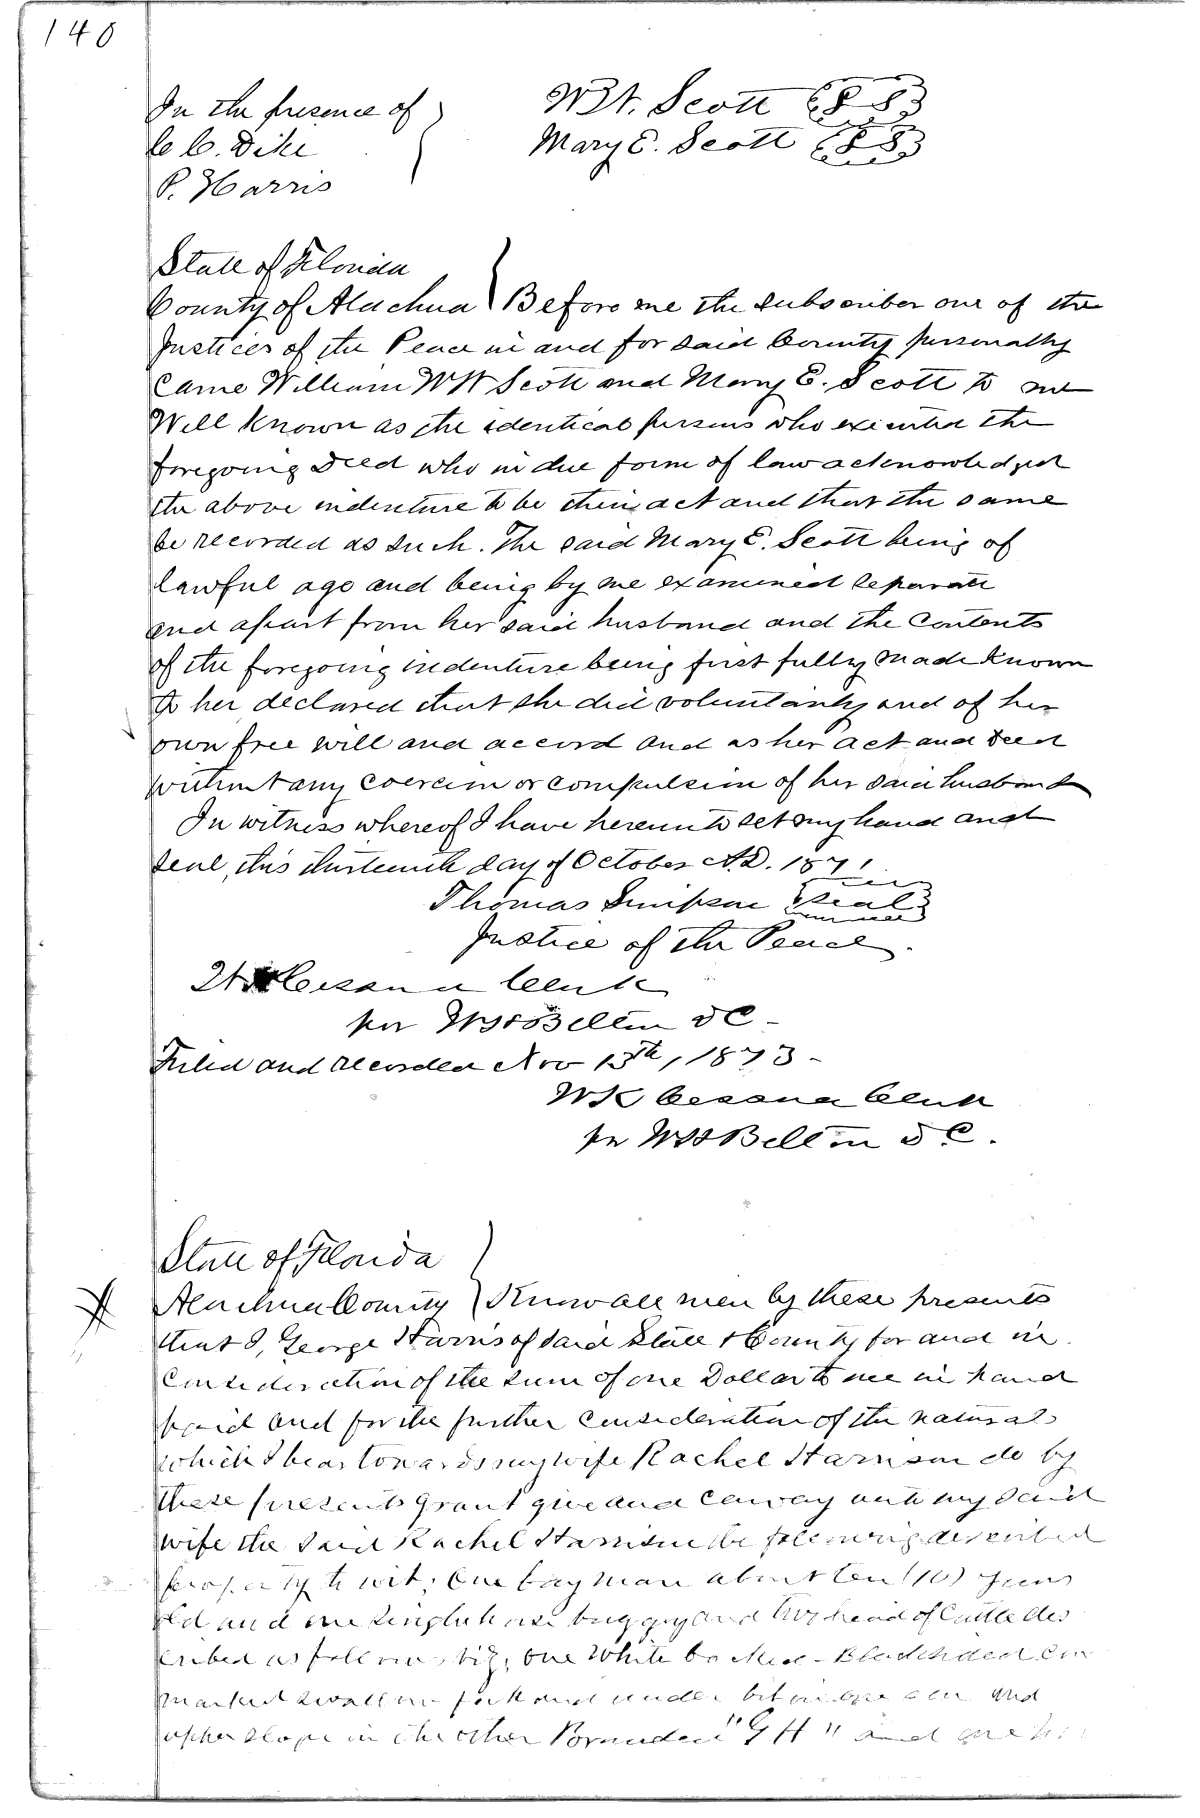 140
In the presence of
C C. Dike
P. Harris
W W. Scott
Mary E. Scott
State of Florida
County of Alachua } Before me the subscriber one of the
Justices of the Peace in and for said County personally
Came William W W Scott and Mary E. Scott to me
Well Known as the identical persons who executed the
foregoing Deed who in due form of law acknowledged
the above indenture to be their act and that the same
be recorded as such. The said Mary E. Scott being of
lawful age and being by me examined separate
and apart from her said husband and the Contents
of the foregoing indenture being first fully made Known
to her declared that she did voluntarily and of her
own free will and accord and as her act and Deed
without any coercion or compulsion of her said husband
In witness whereof I have hereunto set my hand and
seal, this thirteenth day of October A.D. 1871.
Thomas Simpson Seal
Justice of the Peace.
Cessna Clerk
per W H Belton D C -
Filed and recorded Nov 13th, 1873 -
W K Cessna Clerk
per W H Belton D C.
State of Florida
Alachua County } Know all men by these presents
that I, George Harris of said State & County for and in
Consideration of the sum of one Dollar to me in hand
paid and for the further Consideration of the natural
which I bear towards my wife Rachel Harrison do by
these presents grant give and unto my said
wife the said Rachel Harrison the following described
property to wit; One bay mare about ten (10) years
old and one single horse buggy and two head of Cattle des
cribed as follows, viz, one White backed - Black sided Cow
marked swallow fork and under bit in one ear and
upper slope in the other Branded "G H" and one